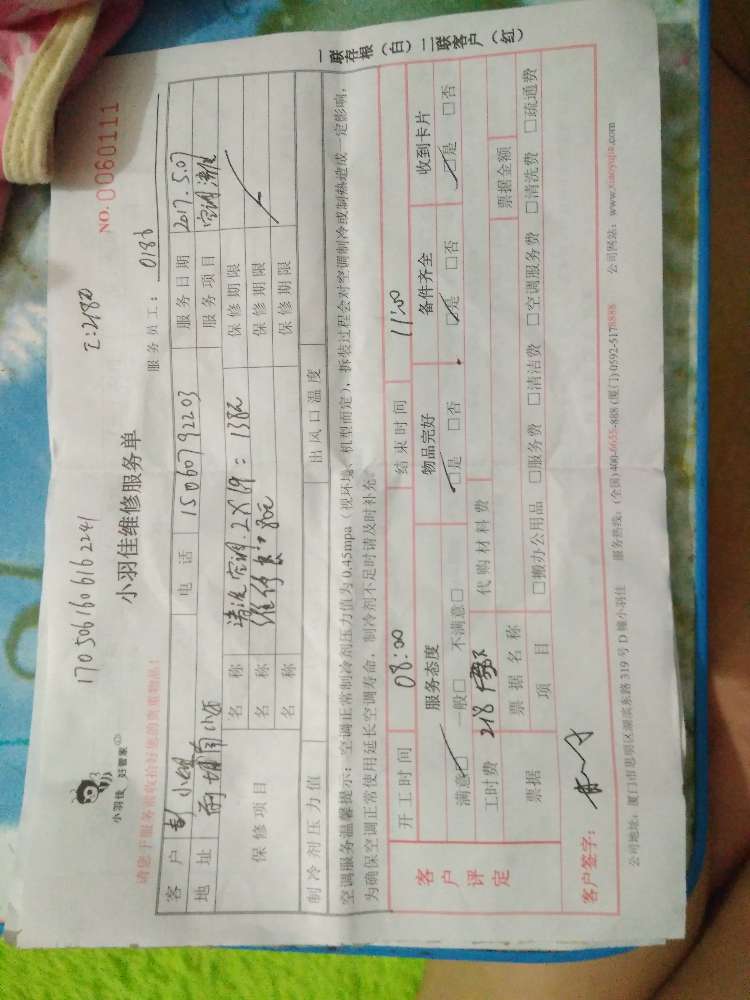 1705061606162241
Z:2180
NO.0060111
小羽佳 好管家
小羽佳维修服务单
请您于服务前收拾好您的贵重物品！
服务员工：0186
客户 小姐 电话 15060792203 服务日期 2017.5.07
地址 服务项目 空调清洗
保修项目 名称 清洗空调 2×69=138元 保修期限
名称 80元 保修期限
名称 保修期限
制冷剂压力值 出风口温度
空调服务温馨提示：空调正常制冷剂压力值为0.45mpa（视环境、机型而定），拆装过程会对空调制冷或制热造成一定影响，
为确保空调正常使用延长空调寿命，制冷剂不足时请及时补充。
一联存根（白）二联客户（红）
客户评定
开工时间 08:00 结束时间 11:00
服务态度 物品完好 备件齐全 收到卡片
满意□ 一般□ 不满意□ □是 □否 □是 □否 □是 □否
工时费 218 代购材料费
票据 票据名称 票据金额
项目 □搬办公用品 □服务费 □清洁费 □空调服务费 □清洗费 □疏通费
客户签字：
公司地址：厦门市思明区湖滨东路319号D幢小羽佳 服务热线：(全国)400-6655-888(厦门)0592-5178888 公司网站：www.xiaoyujia.com